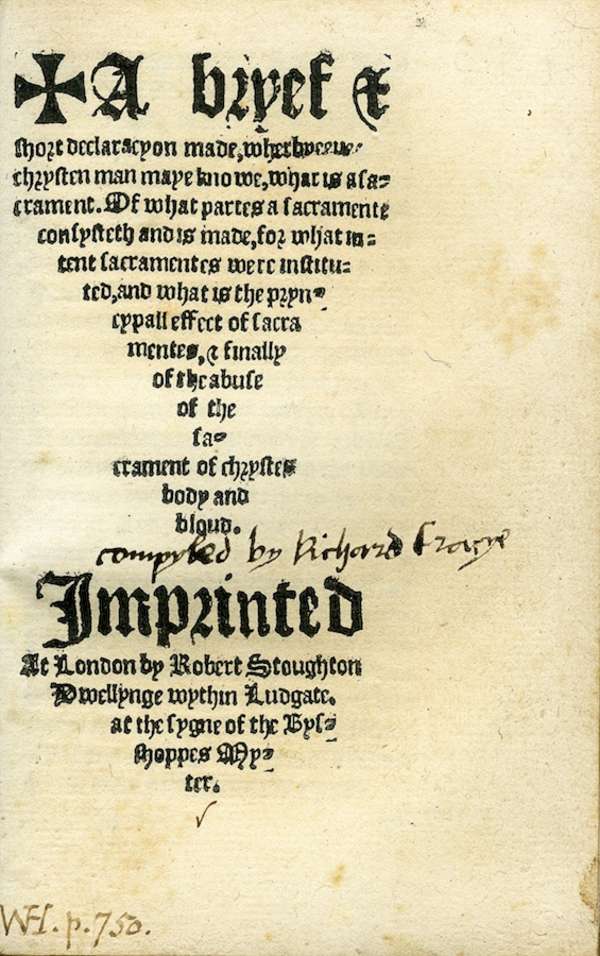 ✠ A bryef &
short declaracyon made, wherby euery
chrysten man maye knowe, what is a sa-
crament. Of what partes a sacramente
consysteth and is made, for what in-
tent sacramentes were institu-
ted, and what is the pryn-
cypall effect of sacra
mentes, & finally
of the abuse
of the
sa-
crament of chrystes
body and
bloud.
compyled by Richard Tracye
Imprinted
At London by Robert Stoughton
Dwellynge wythin Ludgate.
at the sygne of the Bys-
shoppes My-
ter.
WH. p. 750.